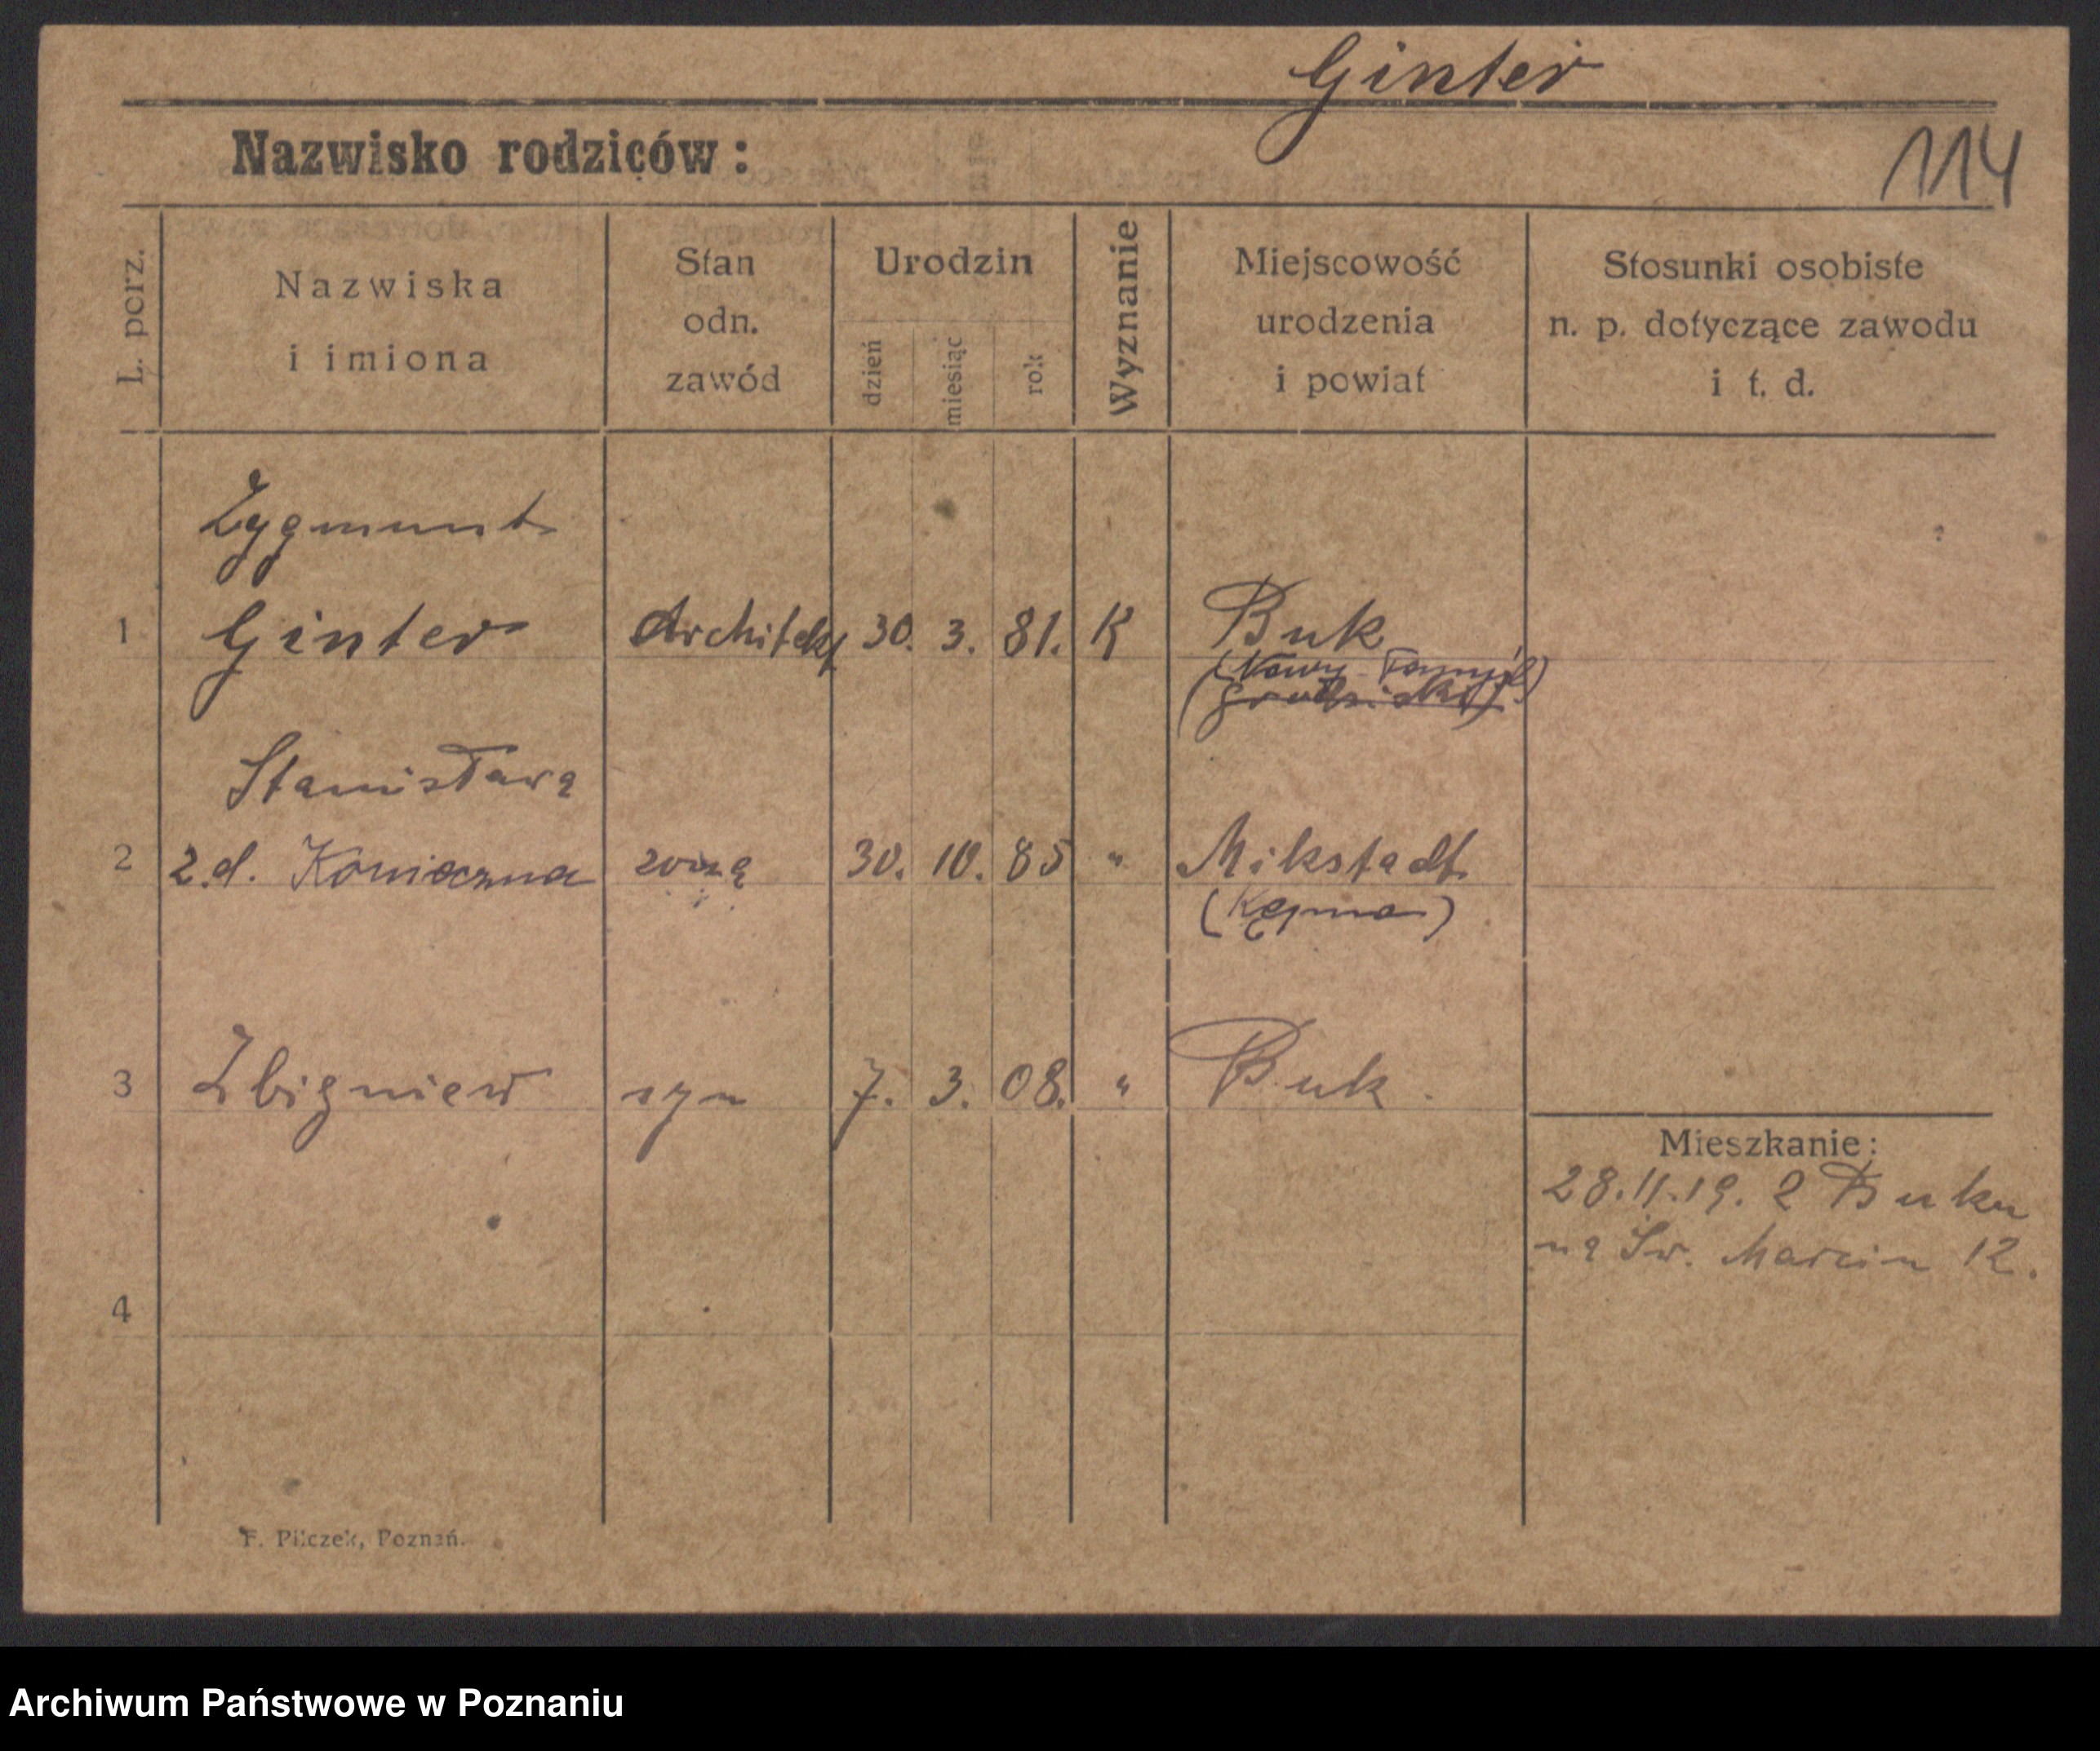 Ginter
Nazwisko rodziców:
114
L. porz.
Nazwiska
i imiona
Stan
odn.
zawód
Urodzin
dzień
miesiąc
rok
Wyznanie
Miejscowość
urodzenia
i powiat
Stosunki osobiste
n. p. dotyczące zawodu
i t. d.
Zygmunt
1 Ginter Architekt 30. 3. 81. K Buk
(Nowy Tomyśl)
(Grodzisko)
Stanisława
2 z.d. Konieczna żona 30. 10. 85 " Mikstadt
(Kępno)
3 Zbigniew syn 7. 3. 08. " Buk.
Mieszkanie:
28.11.19. z Buku
na Św. Marcin 12.
4
F. Pilczek, Poznań.
Archiwum Państwowe w Poznaniu